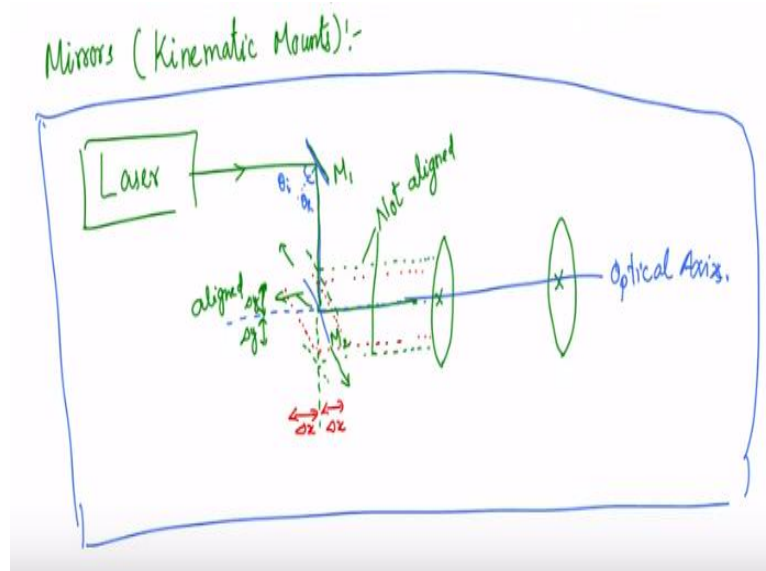 Mirrors (Kinematic Mounts):-
Laser
M₁
θi
θr
Not aligned
aligned
Δy
Δy
M₂
Optical Axis.
Δx Δx